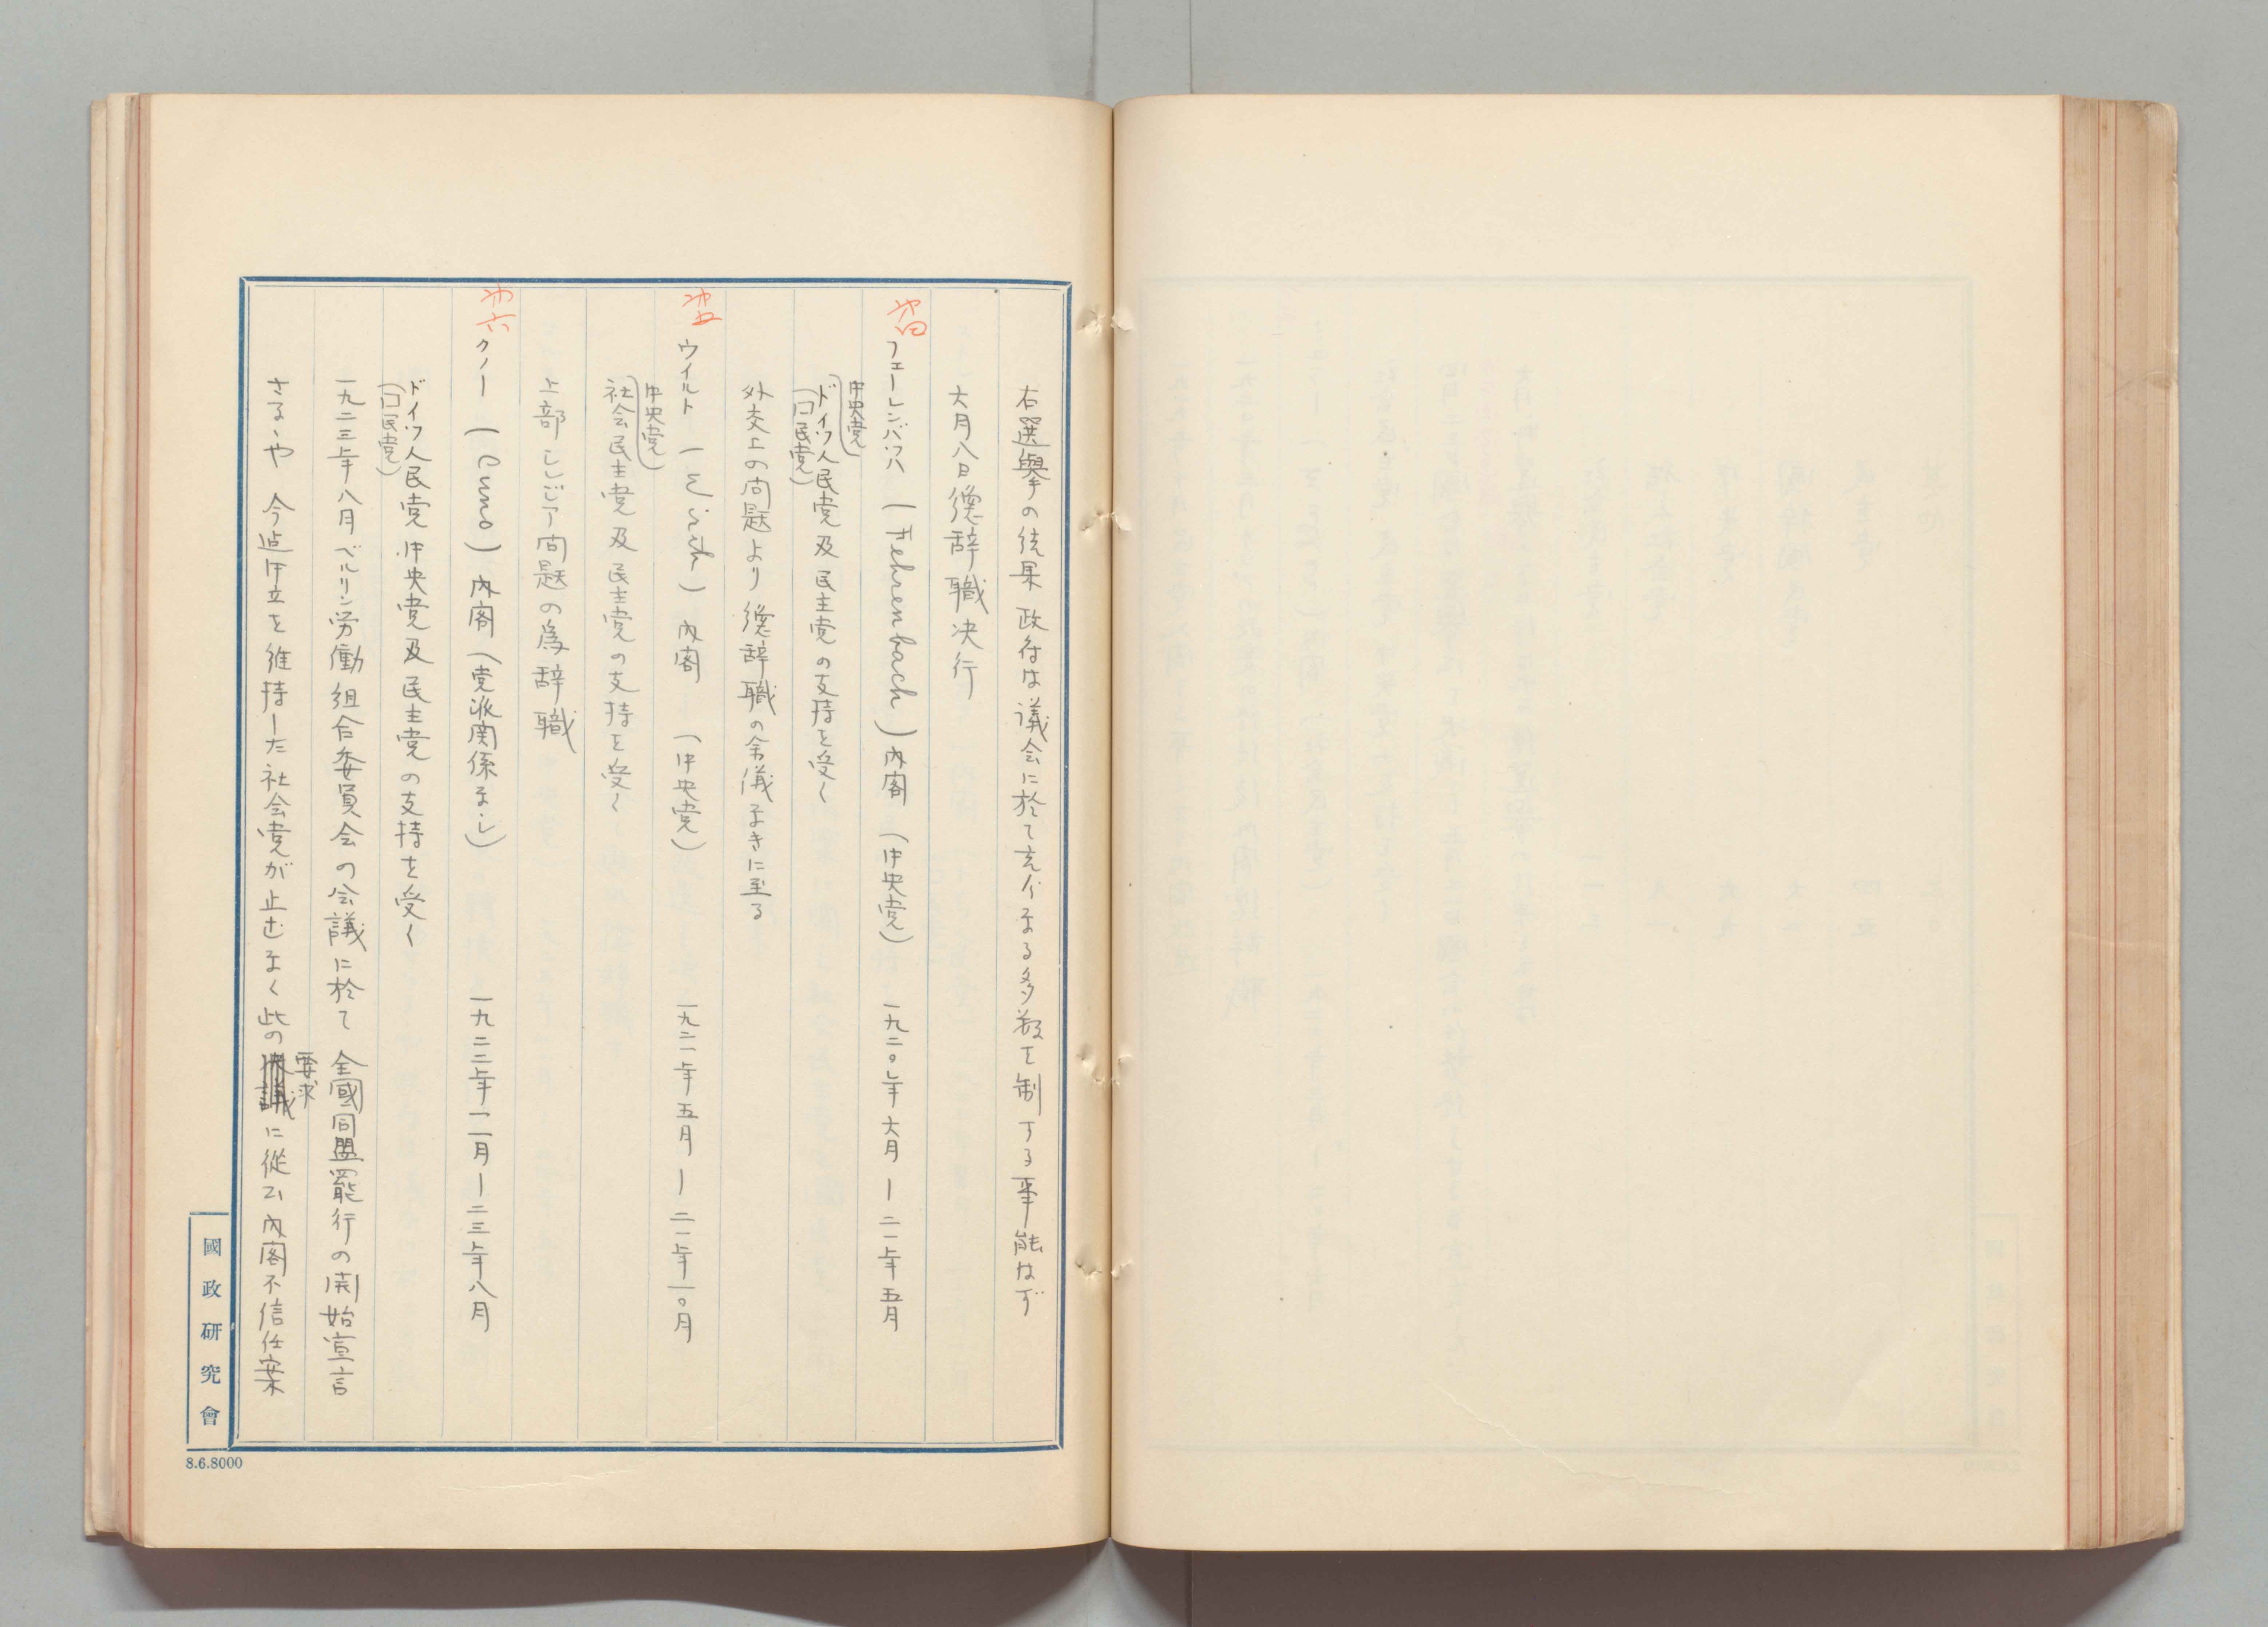 右選擧の結果 政府は議会に於て充分なる多数を制する事能はず
六月八日総辞職決行
第四 フェーレンバッハ (Fehrenbach) 内閣 (中央党) 一九二〇年六月ー二一年五月
中央党
ドイツ人民党及民主党の支持を受く
(囗民党)
外交上の問題より総辞職の余儀なきに至る
第五 ウイルト ( ) 内閣 (中央党) 一九二一年五月ー二二年一〇月
中央党
社会民主党及民主党の支持を受く
上部シレジア問題の為辞職
第六 クノー (Cuno) 内閣 (党派関係なし) 一九二二年一一月ー二三年八月
ドイツ人民党 中央党及民主党の支持を受く
(囗民党)
一九二三年八月ベルリン労働組合委員会の会議に於て 全國同盟罷行の開始宣言
さるゝや 今迄中立を維持した社会党が止むなく此の要求に従ひ内閣不信任案
國政研究會
8.6.8000